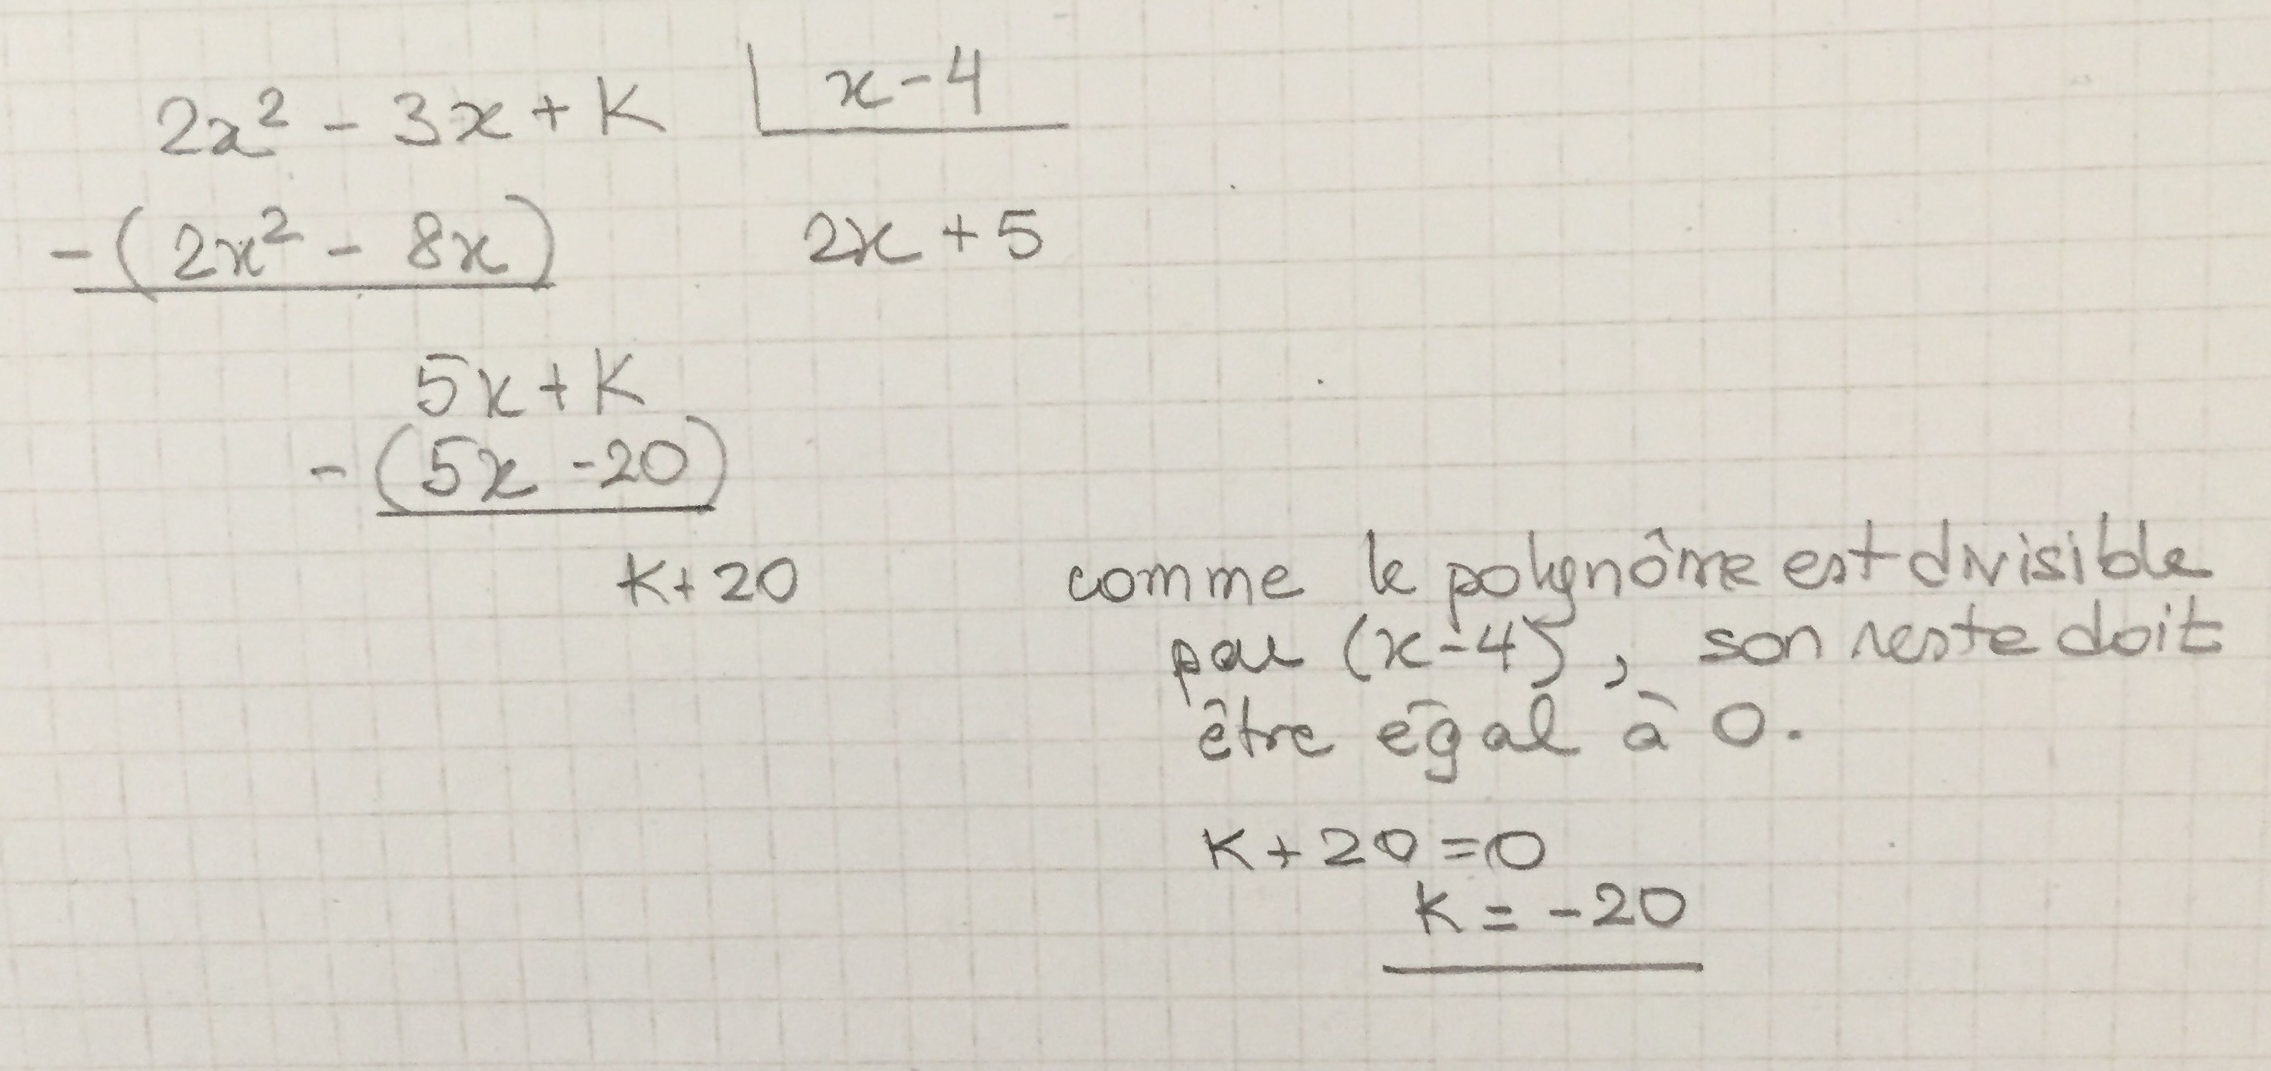 2x² - 3x + K | x - 4
-(2x² - 8x) 2x + 5
5x + K
-(5x - 20)
K + 20
comme le polynôme est divisible
par (x - 4), son reste doit
être égal à 0.
K + 20 = 0
K = -20